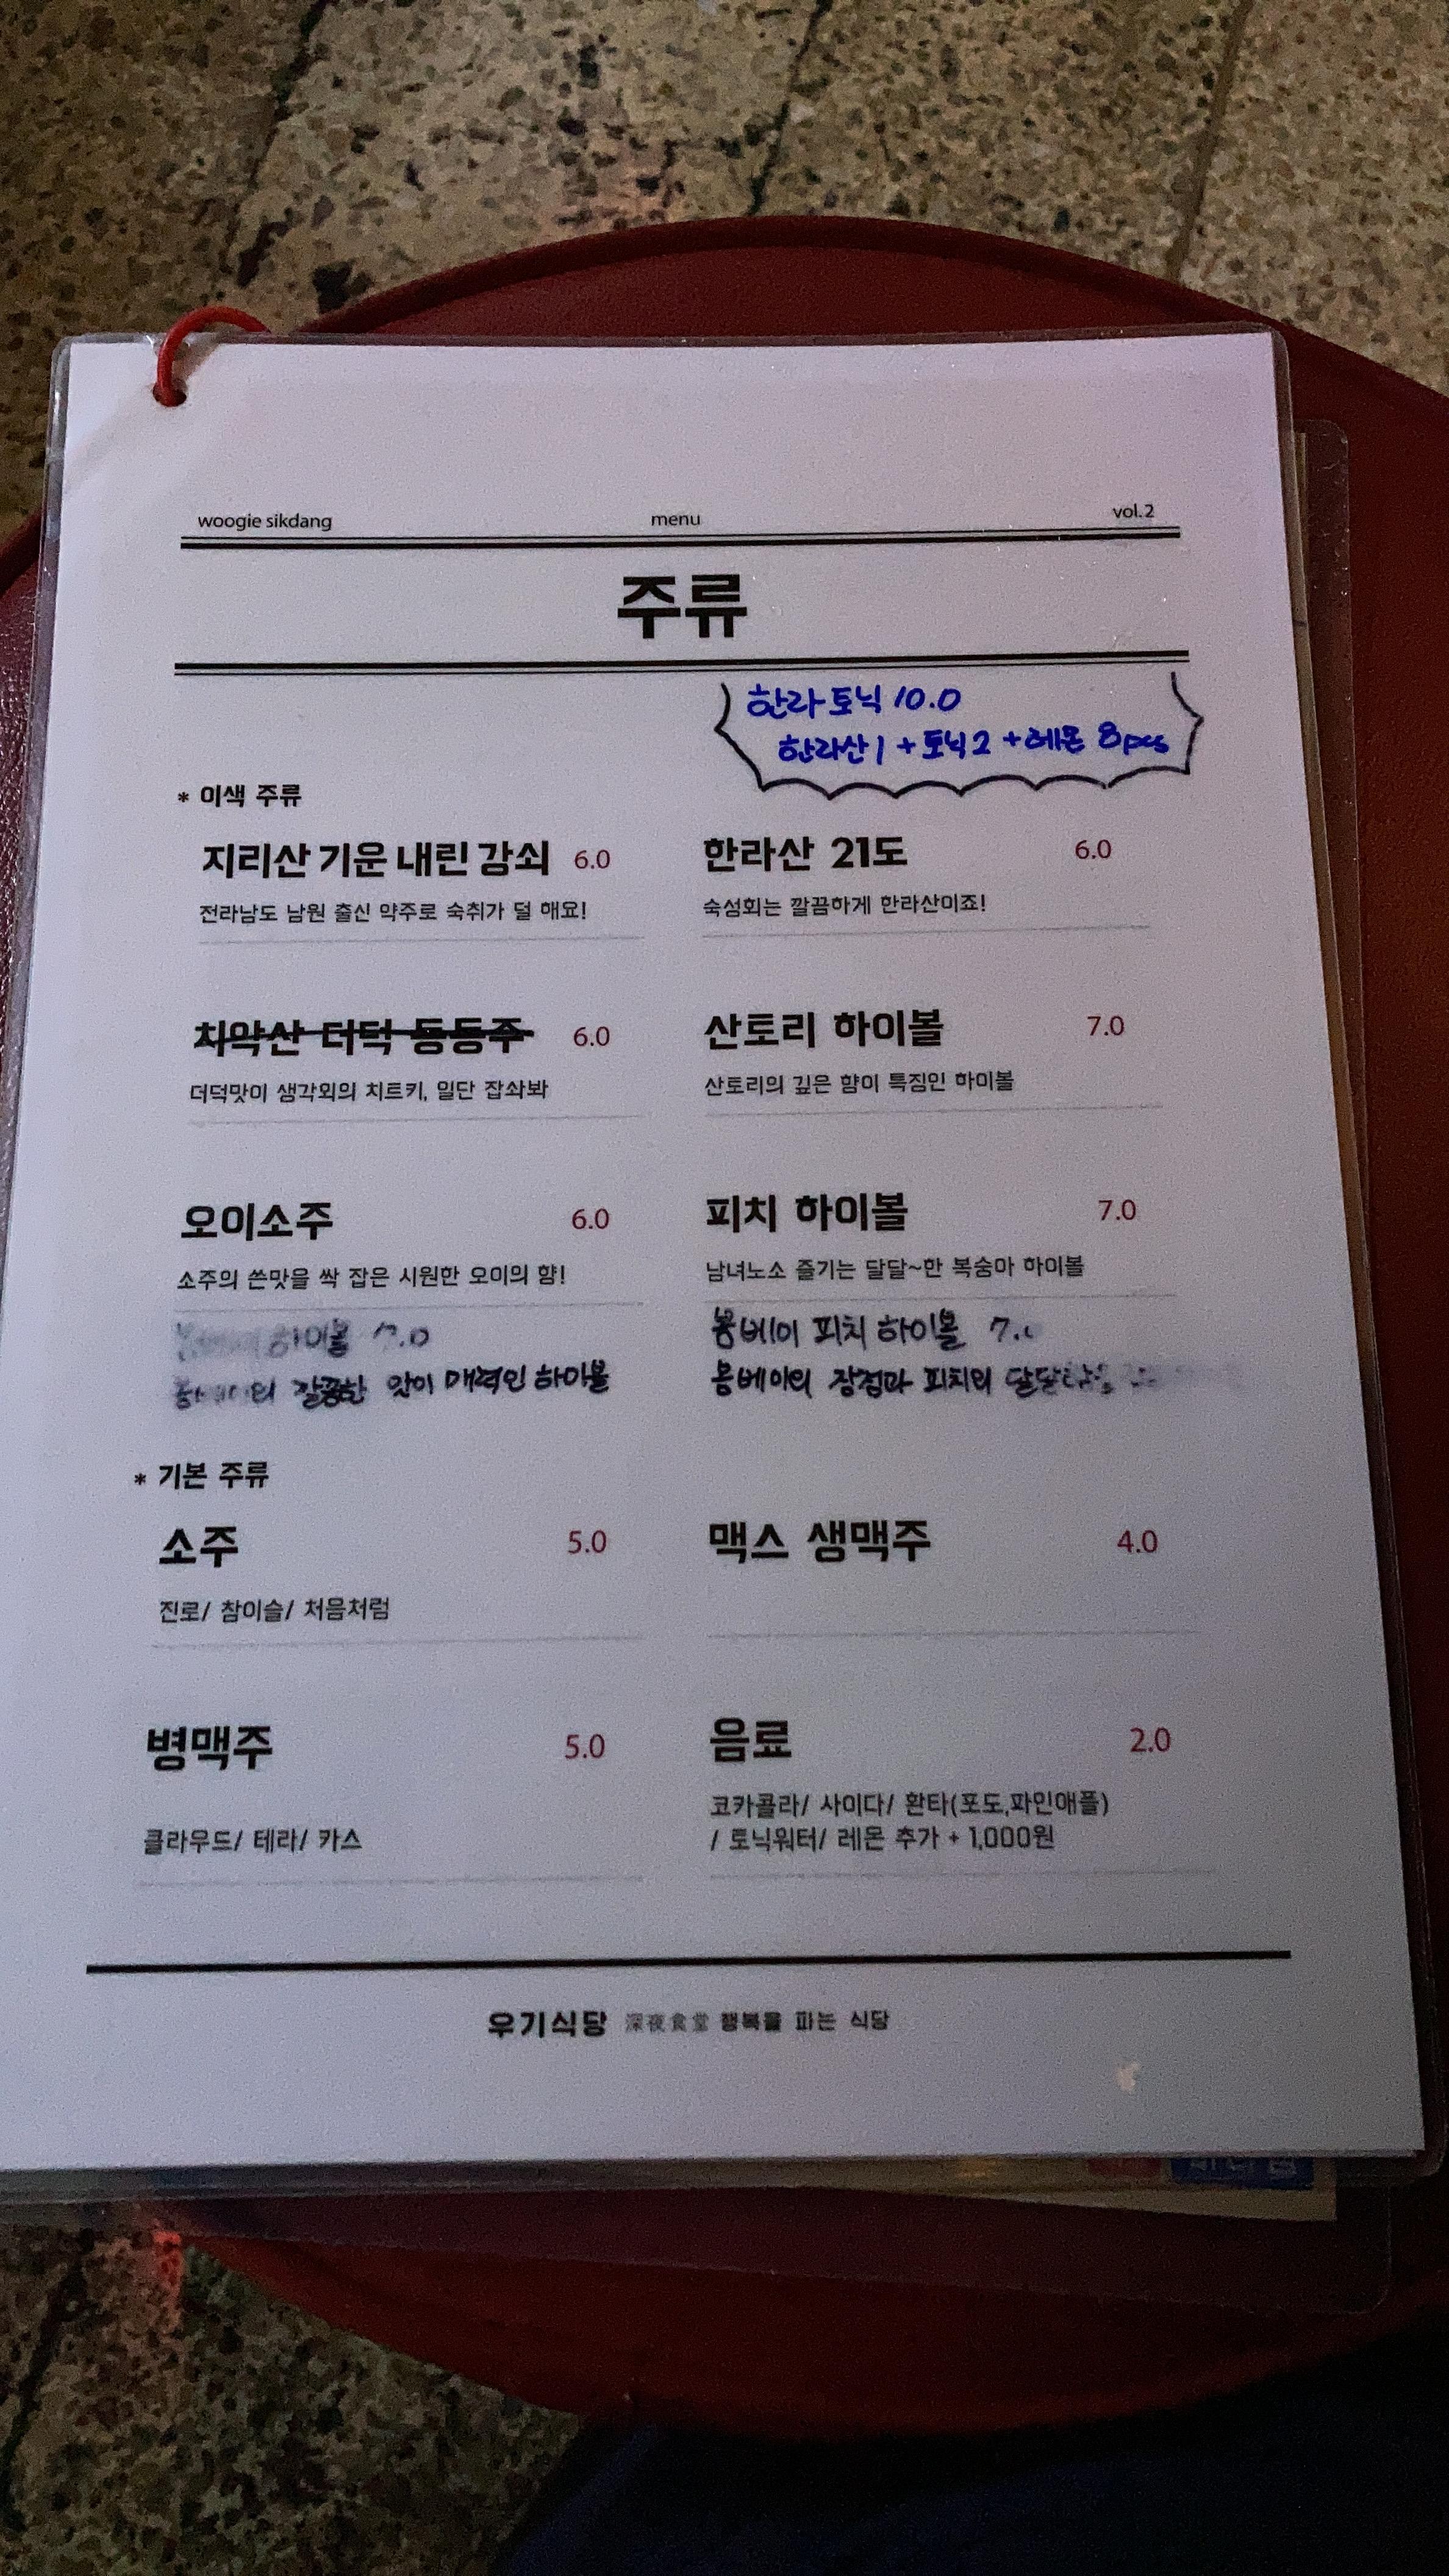 woogie sikdang menu vol.2
주류
한라토닉 10.0
한라산1 + 토닉2 + 레몬 8pcs
* 이색 주류
지리산 기운 내린 강쇠 6.0
전라남도 남원 출신 약주로 숙취가 덜 해요!
한라산 21도 6.0
숙성회는 깔끔하게 한라산이죠!
치악산 더덕 동동주 6.0
더덕맛이 생각외의 치트키, 일단 잡솨봐
산토리 하이볼 7.0
산토리의 깊은 향이 특징인 하이볼
오이소주 6.0
소주의 쓴맛을 싹 잡은 시원한 오이의 향!
피치 하이볼 7.0
남녀노소 즐기는 달달~한 복숭아 하이볼
하이볼 7.0
깔끔한 맛이 매력인 하이볼
봄베이 피치 하이볼
봄베이의 장점과 피치의
* 기본 주류
소주 5.0
진로/ 참이슬/ 처음처럼
맥스 생맥주 4.0
병맥주 5.0
클라우드/ 테라/ 카스
음료 2.0
코카콜라/ 사이다/ 환타(포도,파인애플)
/ 토닉워터/ 레몬 추가 + 1,000원
우기식당 深夜食堂 행복을 파는 식당